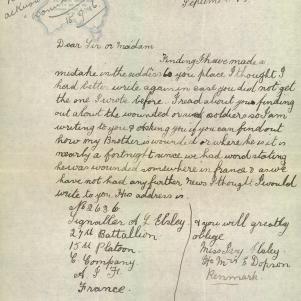 Dear Sir or madam
Finding I have made a
mistake in the address to you place I thought I
had better write again in case you did not get
the one I wrote before. I read about you finding
out about the wounded soldiers so I am
writing to you & asking you if you can find out
how my Brother is wounded & where he is it is
nearly a fortnight since we had word stating
he was wounded somewhere in France & as we
have not had any further news I thought I would
write to you. His address is
No 2636
Signaller A J
27th Battallion
15th Platoon
C Company
A I F
France.
& you will greatly
oblige
Miss Ivy
Renmark